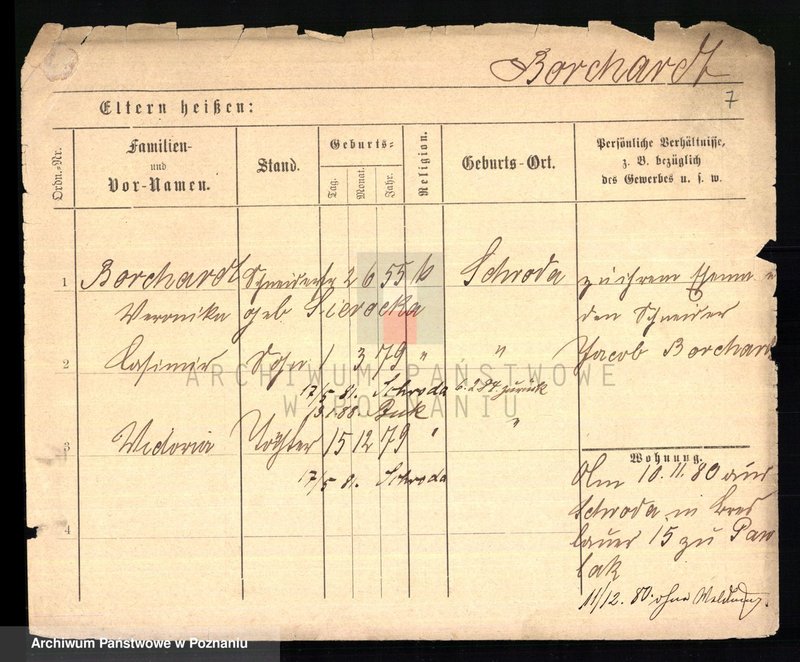 Borchardt
7
Eltern heißen:
Ordn.-Nr.
Familien-
und
Vor-Namen.
Stand.
Geburts-
Tag.
Monat.
Jahr.
Religion.
Geburts-Ort.
Persönliche Verhältnisse,
z. B. bezüglich
des Gewerbes u. s. w.
1 Borchardt Schneiderfr 2 6 55 k Schroda zu ihrem Ehema
Veronika geb Sierocka den Schneider
2 Casimir Sohn 1 3 79 " " Jacob Borchard
17/5 81. Schroda 6.2 84 zurück
88. Buk
3 Victoria Tochter 15 12 79 " "
17/5 81. Schroda
Wohnung.
Am 10.11.80 aus
Schroda in Bres
lauer 15 zu Paw
lak
4
11/12. 80. ohne Meldung.
ARCHIWUM PAŃSTWOWE
W POZNANIU
Archiwum Państwowe w Poznaniu